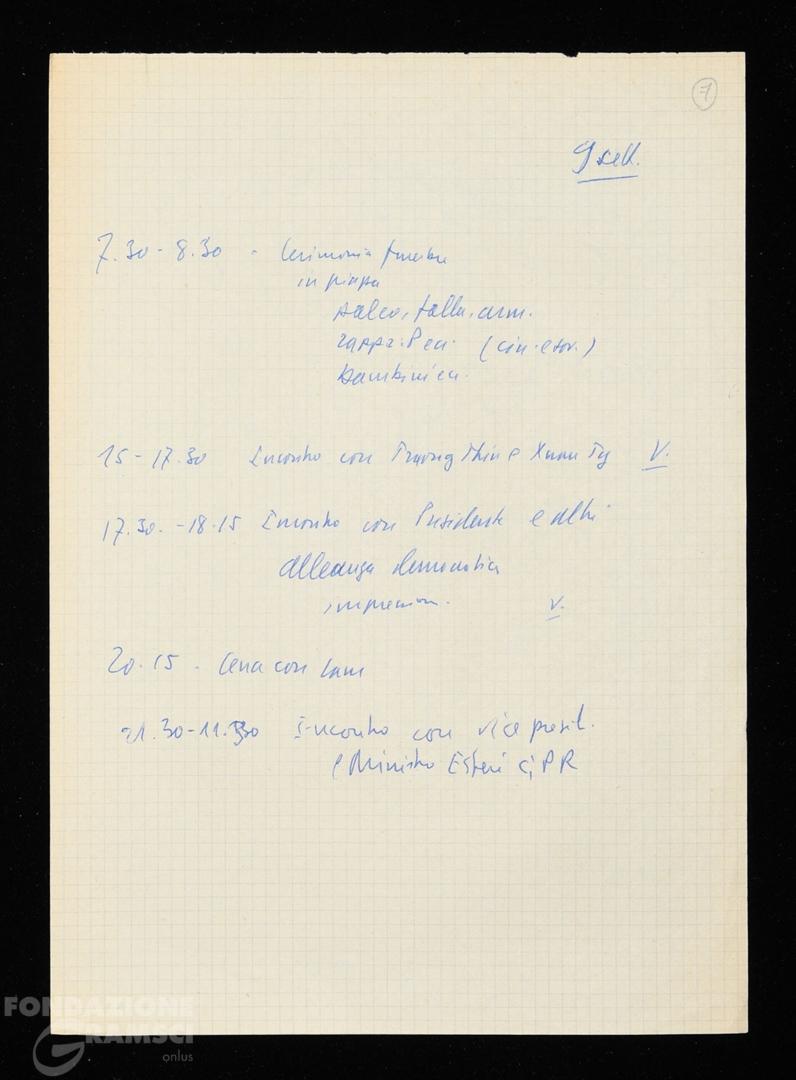 7
9 sett.
7.30 - 8.30 - Cerimonia funebre
in piazza
palco, folla, arm.
rappr. P cu. (cin. e sov.)
bambini
15 - 17.30 Incontro con Truong Thin e Xuan Ty V.
17.30. - 18.15 Incontro con Presidente e altri
Alleanza democratica
impression. V.
20.15 - Cena con Lam
21.30 - 11.30 Incontro con vice presid.
e Ministro Esteri GPR
FONDAZIONE
GRAMSCI
onlus